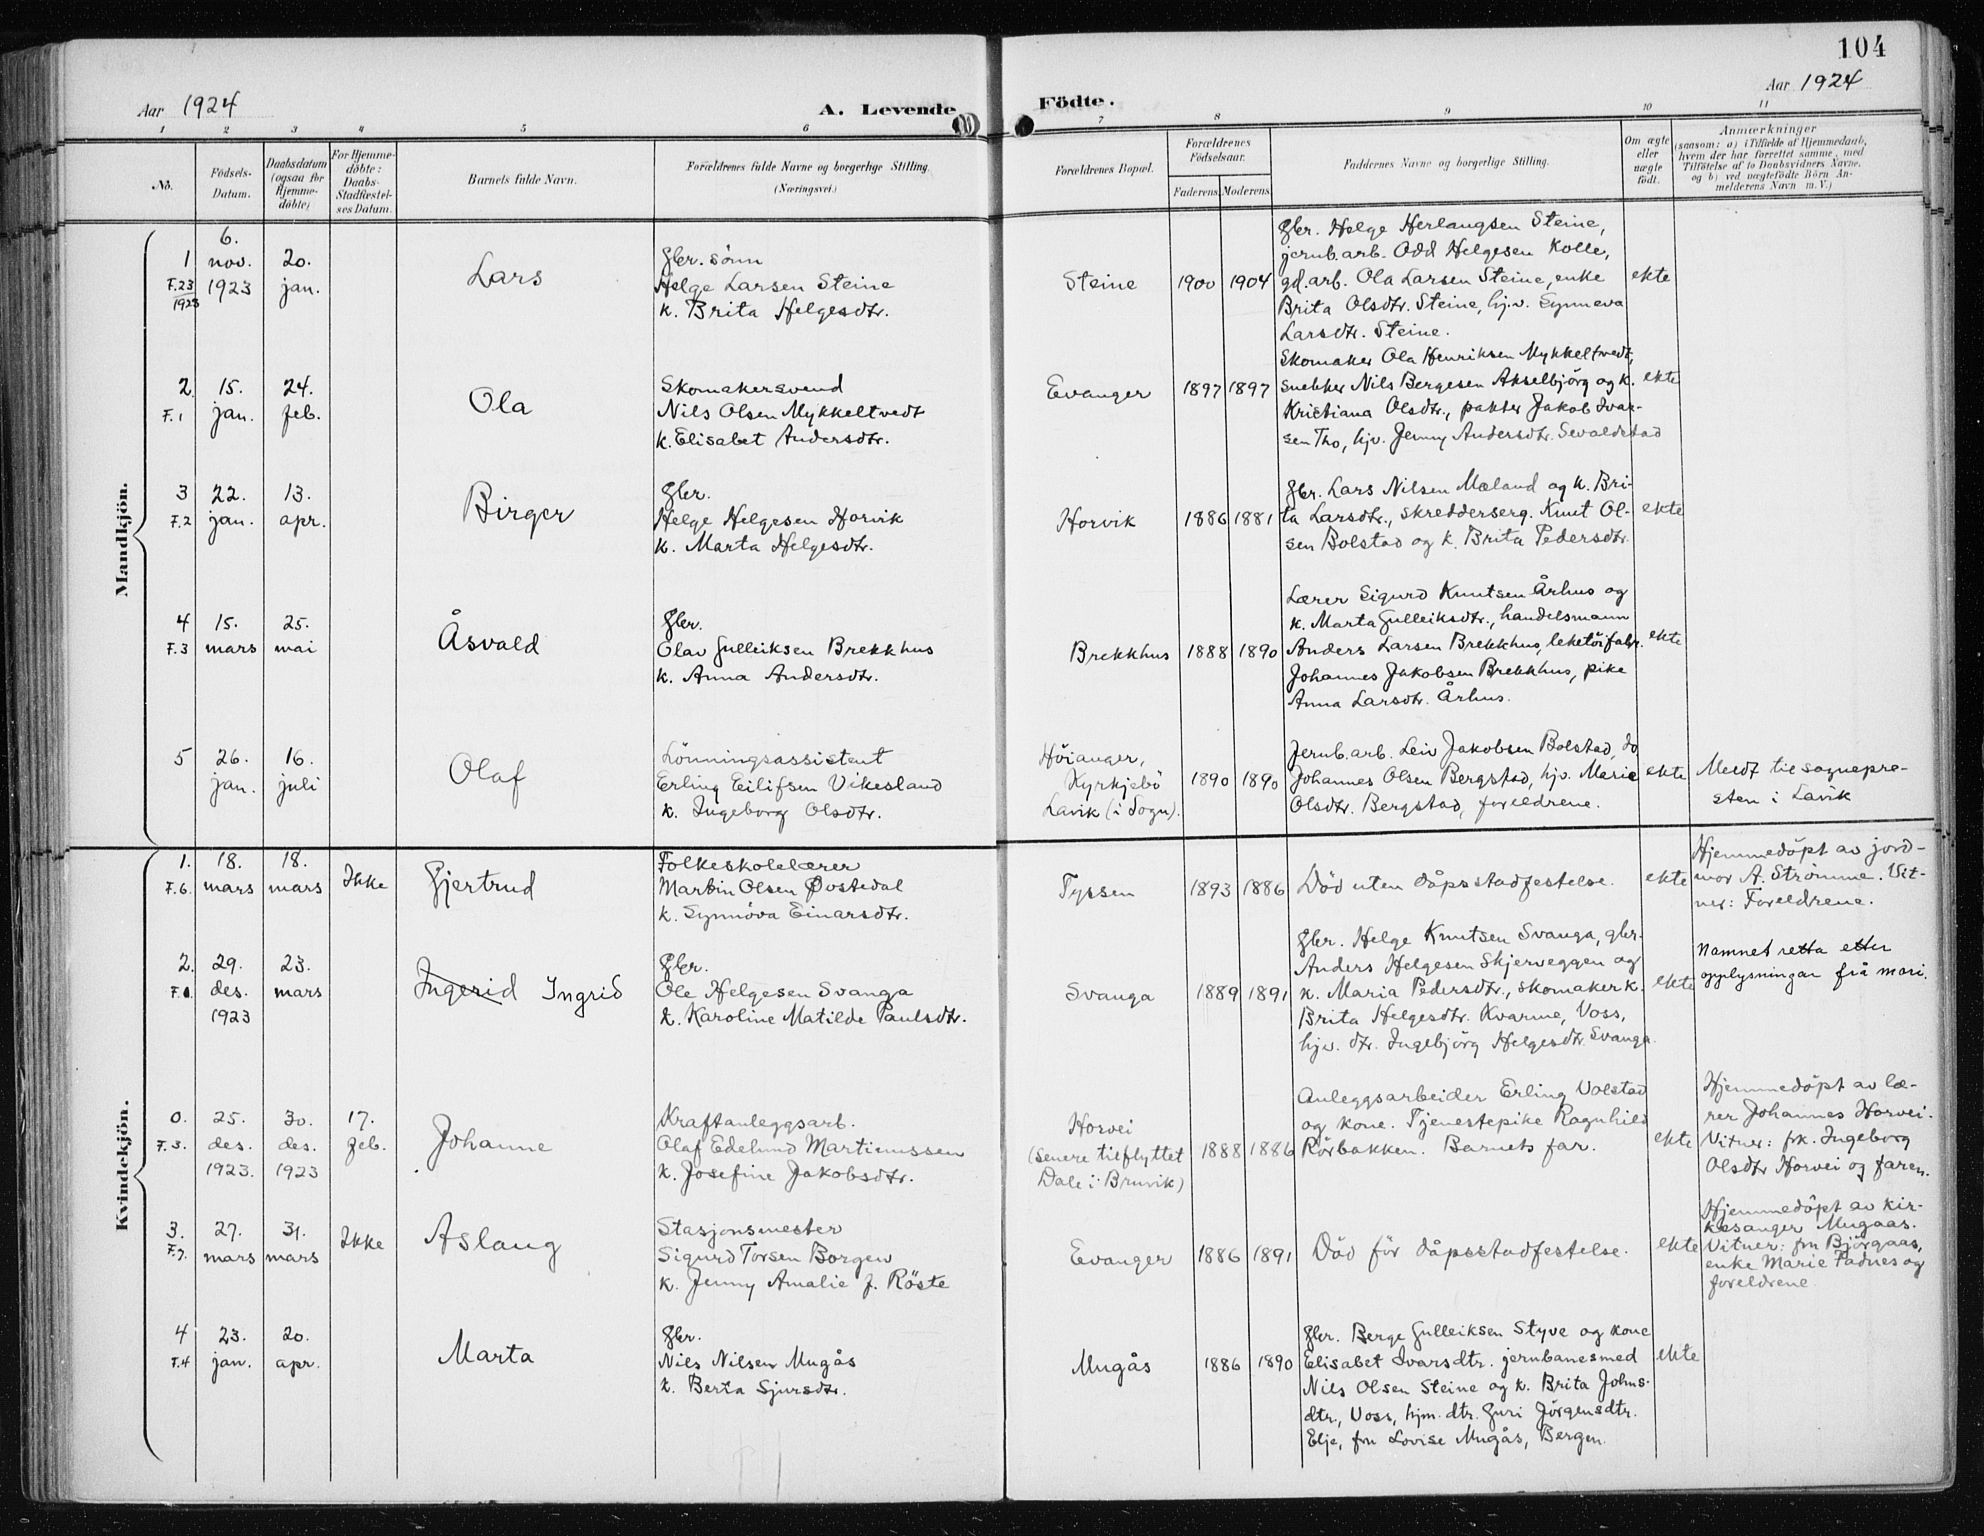 104
Aar 1924
A. Levende
Födte.
Aar 1924
1 2 3 4 5 6 7 8 9 10 11
No.
Födsels-
Datum.
Daabsdatum
(ogsaa for
Hjemme-
döbte)
For Hjemme-
döbte:
Daabs-
Stadfæstel-
ses Datum.
Barnets fulde Navn.
Forældrenes fulde Navne og borgerlige Stilling.
(Næringsvei.)
Forældrenes Bopæl.
Forældrenes
Födselsaar.
Faderens. Moderens.
Faddernes Navne og borgerlige Stilling.
Om ægte
eller
uægte
födt.
Anmærkninger
(saasom: a) i Tilfælde af Hjemmedaab,
hvem der har forrettet samme, med
Tilföielse af to Daabsvidners Navne.
og b) ved uægtefödte Börn An-
melderens Navn m. V.)
Mandkjön.
1
F.23
1923
6.
nov.
1923
20.
jan.
Lars
Gbr. sönn
Helge Larsen Steine
k. Brita Helgesdtr.
Steine
1900
1904
Gbr. Helge Herlaugsen Steine,
jernb.arb. Odd Helgesen Kolle,
gd.arb. Ola Larsen Steine, enke
Brita Olsdtr. Steine, hj.v. Synneva
Larsdtr. Steine.
ekte
2.
F.1
15.
jan.
24.
feb.
Ola
Skomakersvend
Nils Olsen Mykkeltvedt
k. Elisabet Andersdtr.
Evanger
1897
1897
Skomaker Ola Henriksen Mykkeltvedt,
snekker Nils Bergesen Akselbjörg og k.
Kristiana Olsdtr., pakter Jakob Ivar-
sen Tho, hjv. Jenny Andersdtr. Sevaldstad
ekte
3
F.2
22.
jan.
13.
apr.
Birger
Gbr.
Helge Helgesen Horvik
k. Marta Helgesdtr.
Horvik
1886
1881
Gbr. Lars Nilsen Mæland og k. Bri-
ta Larsdtr., skreddersvg. Knut Ol-
sen Bolstad og k. Brita Pedersdtr.
ekte
4
F.3
15.
mars
25.
mai
Åsvald
Gbr.
Olav Gulleiksen Brekkhus
k. Anna Andersdtr.
Brekkhus
1888
1890
Lærer Sigurd Knutsen Århus og
k. Marta Gulleiksdtr., handelsmann
Anders Larsen Brekkhus, leketöifabr.
Johannes Jakobsen Brekkhus, pike
Anna Larsdtr. Århus.
ekte
5
26.
jan.
16.
juli
Olaf
Lönningsassistent
Erling Eilifsen Vikesland
k. Ingeborg Olsdtr.
Höianger,
Kyrkjebö
Lavik (i Sogn).
1890
1890
Jernb.arb. Leiv Jakobsen Bolstad, do
Johannes Olsen Bergstad, hjv. Marie
Olsdtr. Bergstad, foreldrene.
ekte
Meldt til sognepre-
sten i Lavik
Kvindekjön.
1.
F.6.
18.
mars
18.
mars
Ikke
Gjertrud
Folkeskolelærer
Martin Olsen Øvstedal
k. Synnöva Einarsdtr.
Tyssen
1893
1886
Död uten dåpsstadfestelse.
ekte
Hjemmedöpt av jord-
mor A. Strømme. Vit-
ner: Foreldrene.
2.
29.
des.
1923
23.
mars
Ingerid Ingrid
Gbr.
Ole Helgesen Svanga
k. Karoline Matilde Paulsdtr.
Svanga
1889
1891
Gbr. Helge Knutsen Svanga, gbr.
Anders Helgesen Skjerveggen og
k. Maria Pedersdtr., skomaker k.
Brita Helgesdtr. Kvarme, Voss,
hjv. dtr. Ingebjörg Helgesdtr. Svanga.
ekte
Namnet retta etter
opplysningar frå mori.
0.
F.3.
25.
des.
1923.
30.
des.
1923
17.
feb.
Johanne
Kraftanleggsarb.
Olaf Edelund Martinussen
k. Josefine Jakobsdtr.
Horvei
(senere tilflyttet
Dale i Bruvik)
1888
1886
Anleggsarbeider Erling Volstad
og kone. Tjenestepike Ragnhild
Rörbakken. Barnets far.
ekte
Hjemmedöpt av læ-
rer Johannes Horvei.
Vitner: frk. Ingeborg
Olsdtr Horvei og faren.
3.
F.7.
27.
mars
31.
mars
Ikke
Aslaug
Stasjonsmester
Sigurd Torsen Borgen
k. Jenny Amalie f. Röste
Evanger
1886
1891
Död för dåpsstadfestelse.
ekte
Hjemmedöpt av kir-
kesanger Mugaas.
Vitner: fru Björgaas,
enke Marie Fadnes og
foreldrene.
4
F.4
23.
jan.
20.
apr.
Marta
Gbr.
Nils Nilsen Mugås
k. Berta Sjursdtr.
Mugås
1886
1890
Gbr. Berge Gulleiksen Styve og kone
Elisabet Ivarsdtr. jernbanesmed
Nils Olsen Steine og k. Brita Johns-
dtr., Voss, hjm. dtr. Guri Jörgensdtr.
Elje, fru Lovise Mugås, Bergen.
ekte